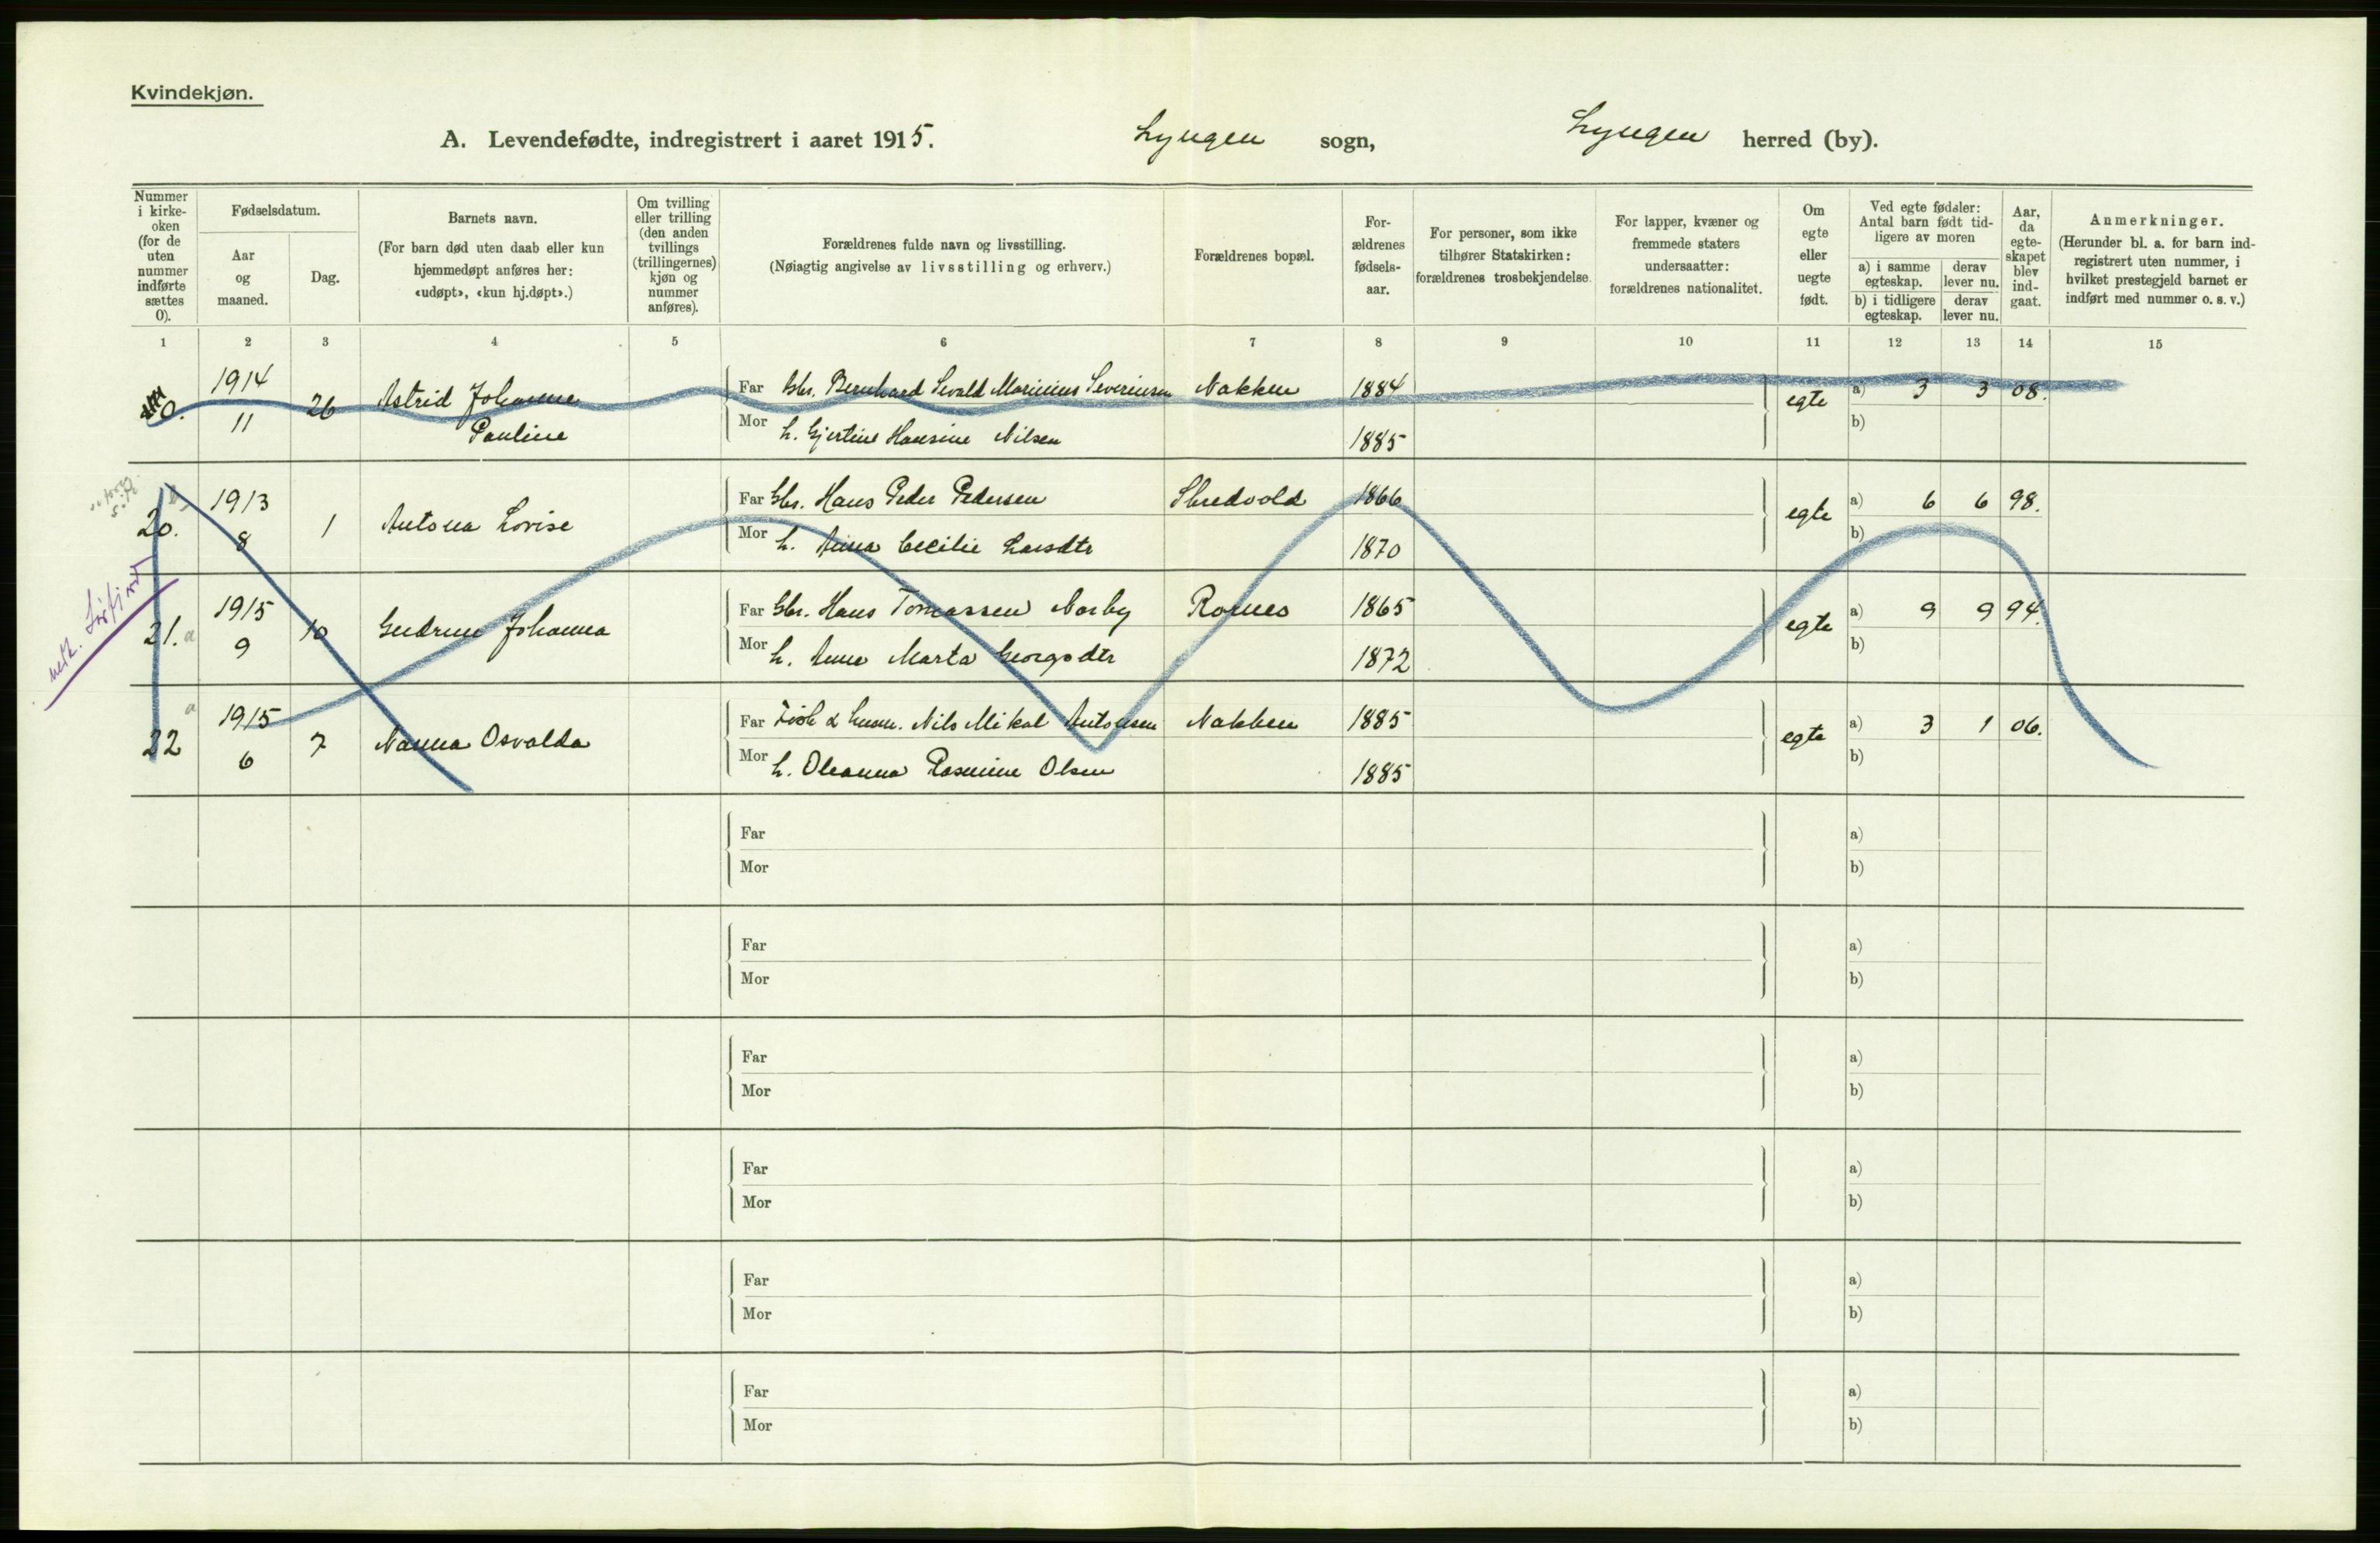 Kvindekjøn.
A. Levendefødte, indregistrert i aaret 1915. Lyngen sogn, Lyngen herred (by).
Nummer i kirke-oken (for de uten nummer indførte sættes 0).
Fødselsdatum.
Aar og maaned.
Dag.
Barnets navn.
(For barn død uten daab eller kun hjemmedøpt anføres her: «udøpt», «kun hj.døpt».)
Om tvilling eller trilling (den anden tvillings (trillingernes) kjøn og nummer anføres).
Forældrenes fulde navn og livsstilling.
(Nøiagtig angivelse av livsstilling og erhverv.)
Forældrenes bopæl.
For-ældrenes fødsels-aar.
For personer, som ikke tilhører Statskirken: forældrenes trosbekjendelse.
For lapper, kvæner og fremmede staters undersaatter: forældrenes nationalitet.
Om egte eller uegte født.
Ved egte fødsler: Antal barn født tid-ligere av moren
a) i samme egteskap. derav lever nu.
b) i tidligere egteskap. derav lever nu.
Aar, da egte-skapet blev ind-gaat.
Anmerkninger.
(Herunder bl. a. for barn ind-registrert uten nummer, i hvilket prestegjeld barnet er indført med nummer o. s. v.)
1 2 3 4 5 6 7 8 9 10 11 12 13 14 15
0. 1914 11 26 Astrid Johanne Pauline
Far Gbr. Bernhard Sevald Marinius Severinsen Nakken 1884 egte a) 3 3 08.
Mor h. Gjertine Hansine Nilsen 1885 b)
20. 1913 8 1 Antona Lovise
Far Gbr. Hans Peder Pedersen 1866 egte a) 6 6 98.
Mor h. Anna Cecilie Larsdtr 1870 b)
21. a 1915 9 10 Gudrun Johanna
Far Gbr. Hans Tomassen Norby 1865 egte a) 9 9 94.
Mor h. Anne Marta Georgsdtr 1872 b)
22 a 1915 6 7 Nanna Osvalda
Far Fisk & Nils Mikal Antonsen Nakken 1885 egte a) 3 1 06.
Mor h. Oleanna Rasmine Olsen 1885 b)
Far a)
Mor b)
Far a)
Mor b)
Far a)
Mor b)
Far a)
Mor b)
Far a)
Mor b)
Far a)
Mor b)